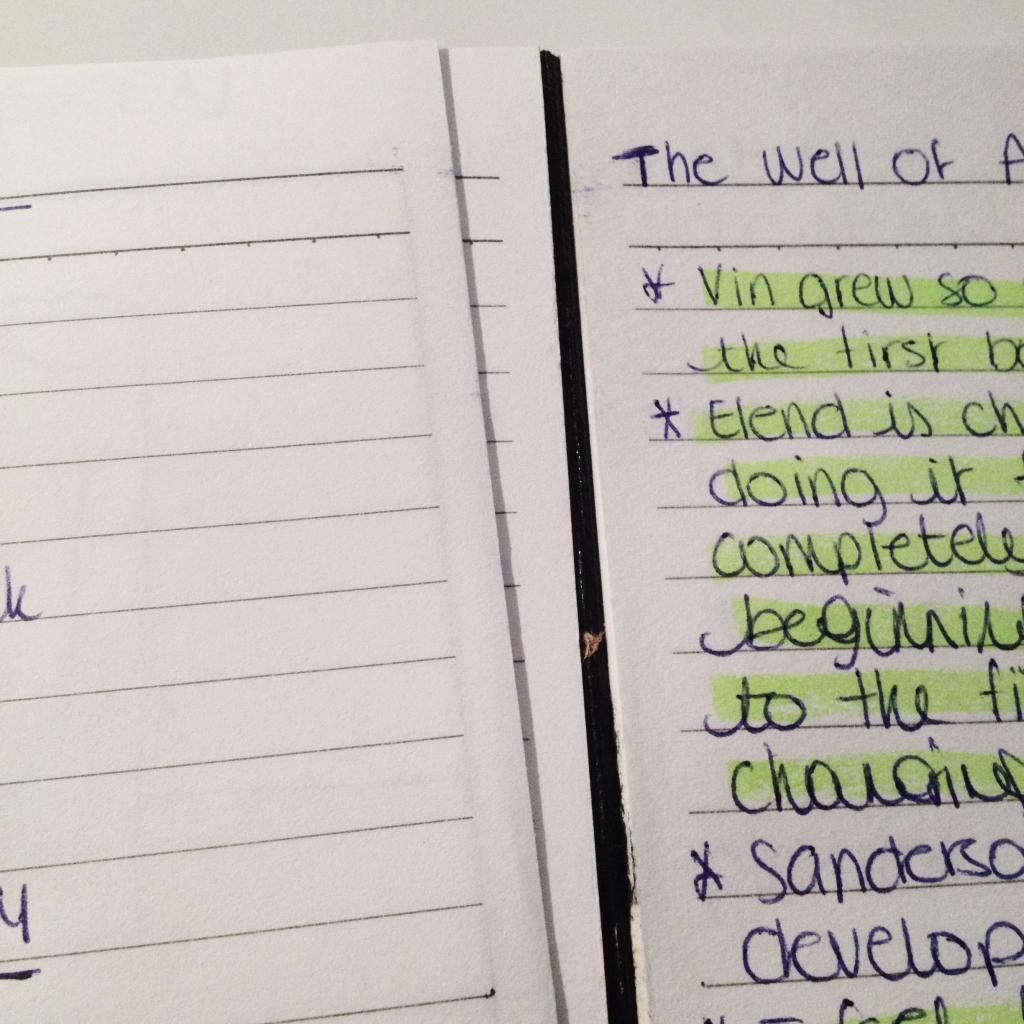 k
y
The Well Of A
* Vin grew so
the first bo
* Elend is ch
doing it f
completely
beginnin
to the fi
changing
* Sanderso
develop
feel